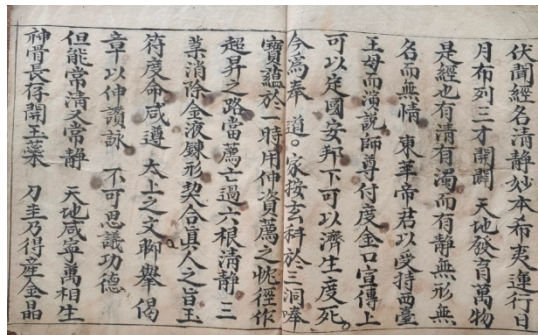 伏聞經名清静妙本希夷運行日
月布列三才開闢 天地發育萬物
是經也有清有濁而有静無形無
名而無情 東華帝君以受持西臺
王母而演説師尊付度金口宣傳上
可以定國安邦下可以濟生度死
今爲奉 道 家按玄科於三洞奉
寶蘊於一時用伸資薦之忱徑作
超昇之路當薦亡過六根清静 三
業消除金液鍊形契合真人之旨玉
符度命咸遵 太上之文聊舉 偈
章以伸讚詠 不可思議功德
但能常清又常静 天地咸寜萬相生
神骨長存開玉蘂 刀圭乃得産金晶